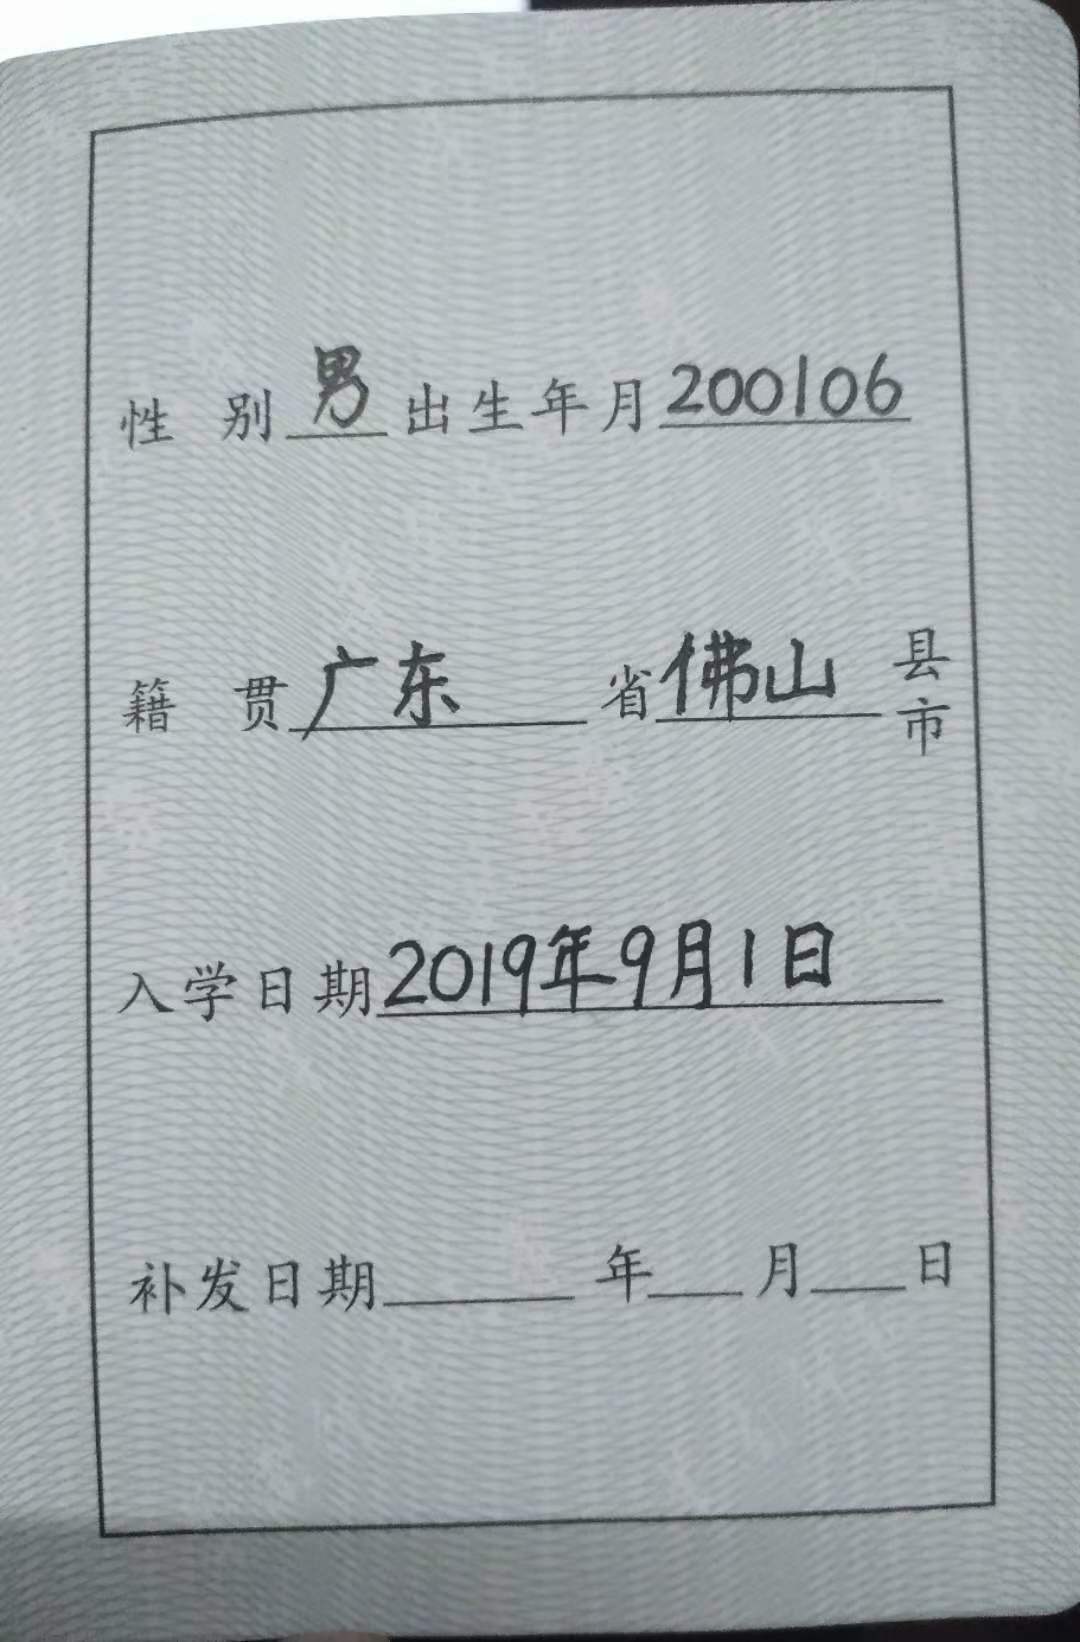 性 别 男 出生年月 200106
籍 贯 广东 省 佛山 县市
入学日期 2019年9月1日
补发日期 年 月 日